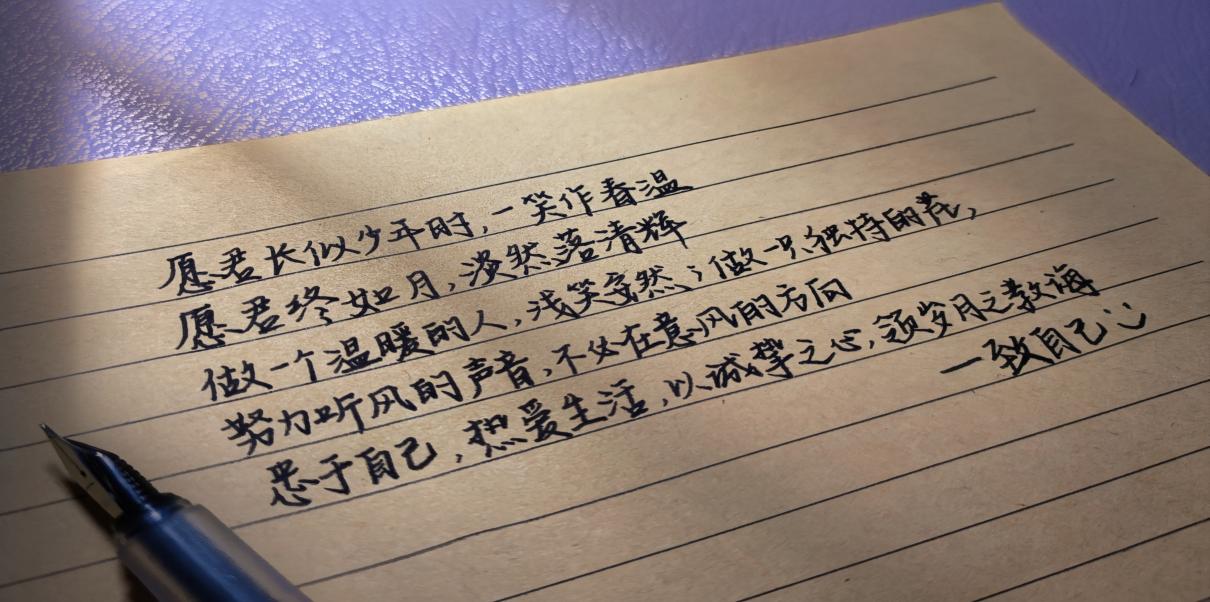 愿君长似少年时，一笑作春温
愿君终如月，淡然落清辉
做一个温暖的人，浅笑安然；做一只独特的花，
努力听风的声音，不必在意风的方向
忠于自己，热爱生活，以诚挚之心，领岁月之教诲
一致自己